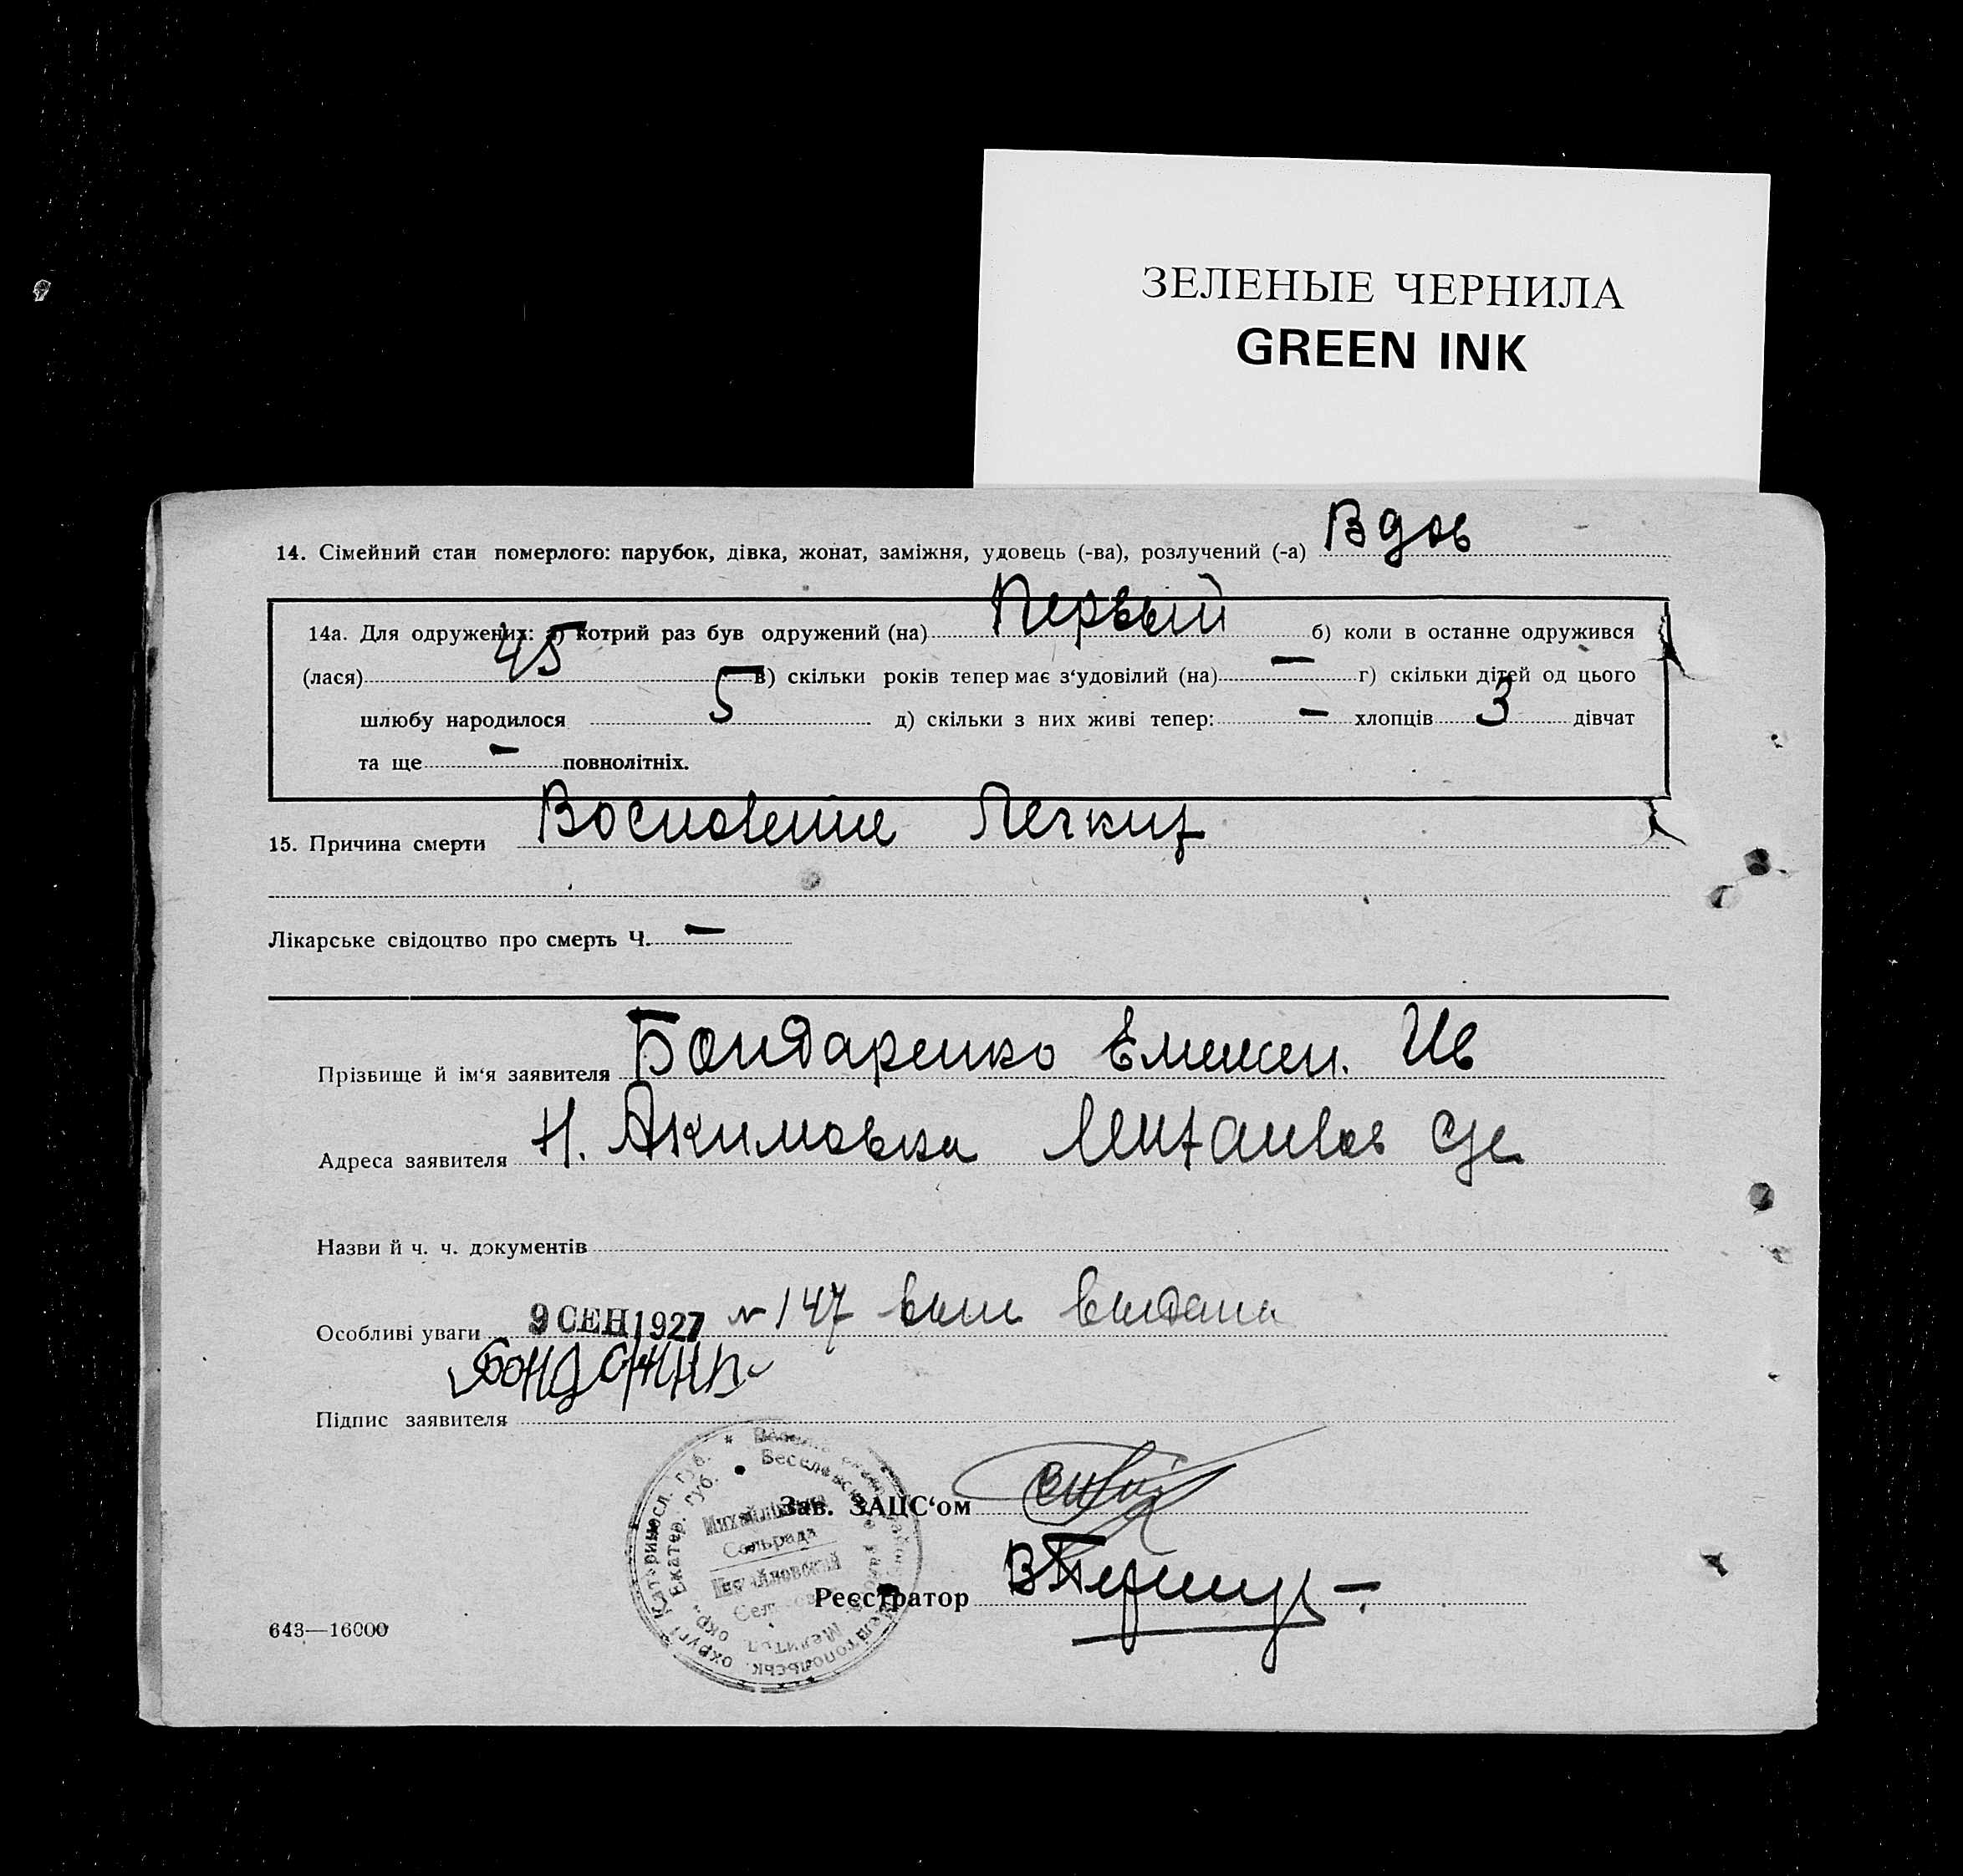 ЗЕЛЕНЫЕ ЧЕРНИЛА
GREEN INK
14. Сімейний стан померлого: парубок, дівка, жонат, заміжня, удовець (-ва), розлучений (-а) Вдов
14а. Для одружених: а) котрий раз був одружений (на) Первый б) коли в останне одружився
(лася) 45 в) скільки років тепер має з‘удовілий (на) — г) скільки дітей од цього
шлюбу народилося 5 д) скільки з них живі тепер: — хлопців 3 дівчат
та ще — повнолітніх.
15. Причина смерти Восполение Легких
Лікарське свідоцтво про смерть Ч. —
Прізвище й ім‘я заявителя Бондаренко Ив
Адреса заявителя Н. Акимовка
Назви й ч. ч. документів
Особливі уваги 9 СЕН 1927 № 147 вып выдана
Підпис заявителя
Зав. ЗАЦС‘ом
Реєстратор
Сельрада
643—16000